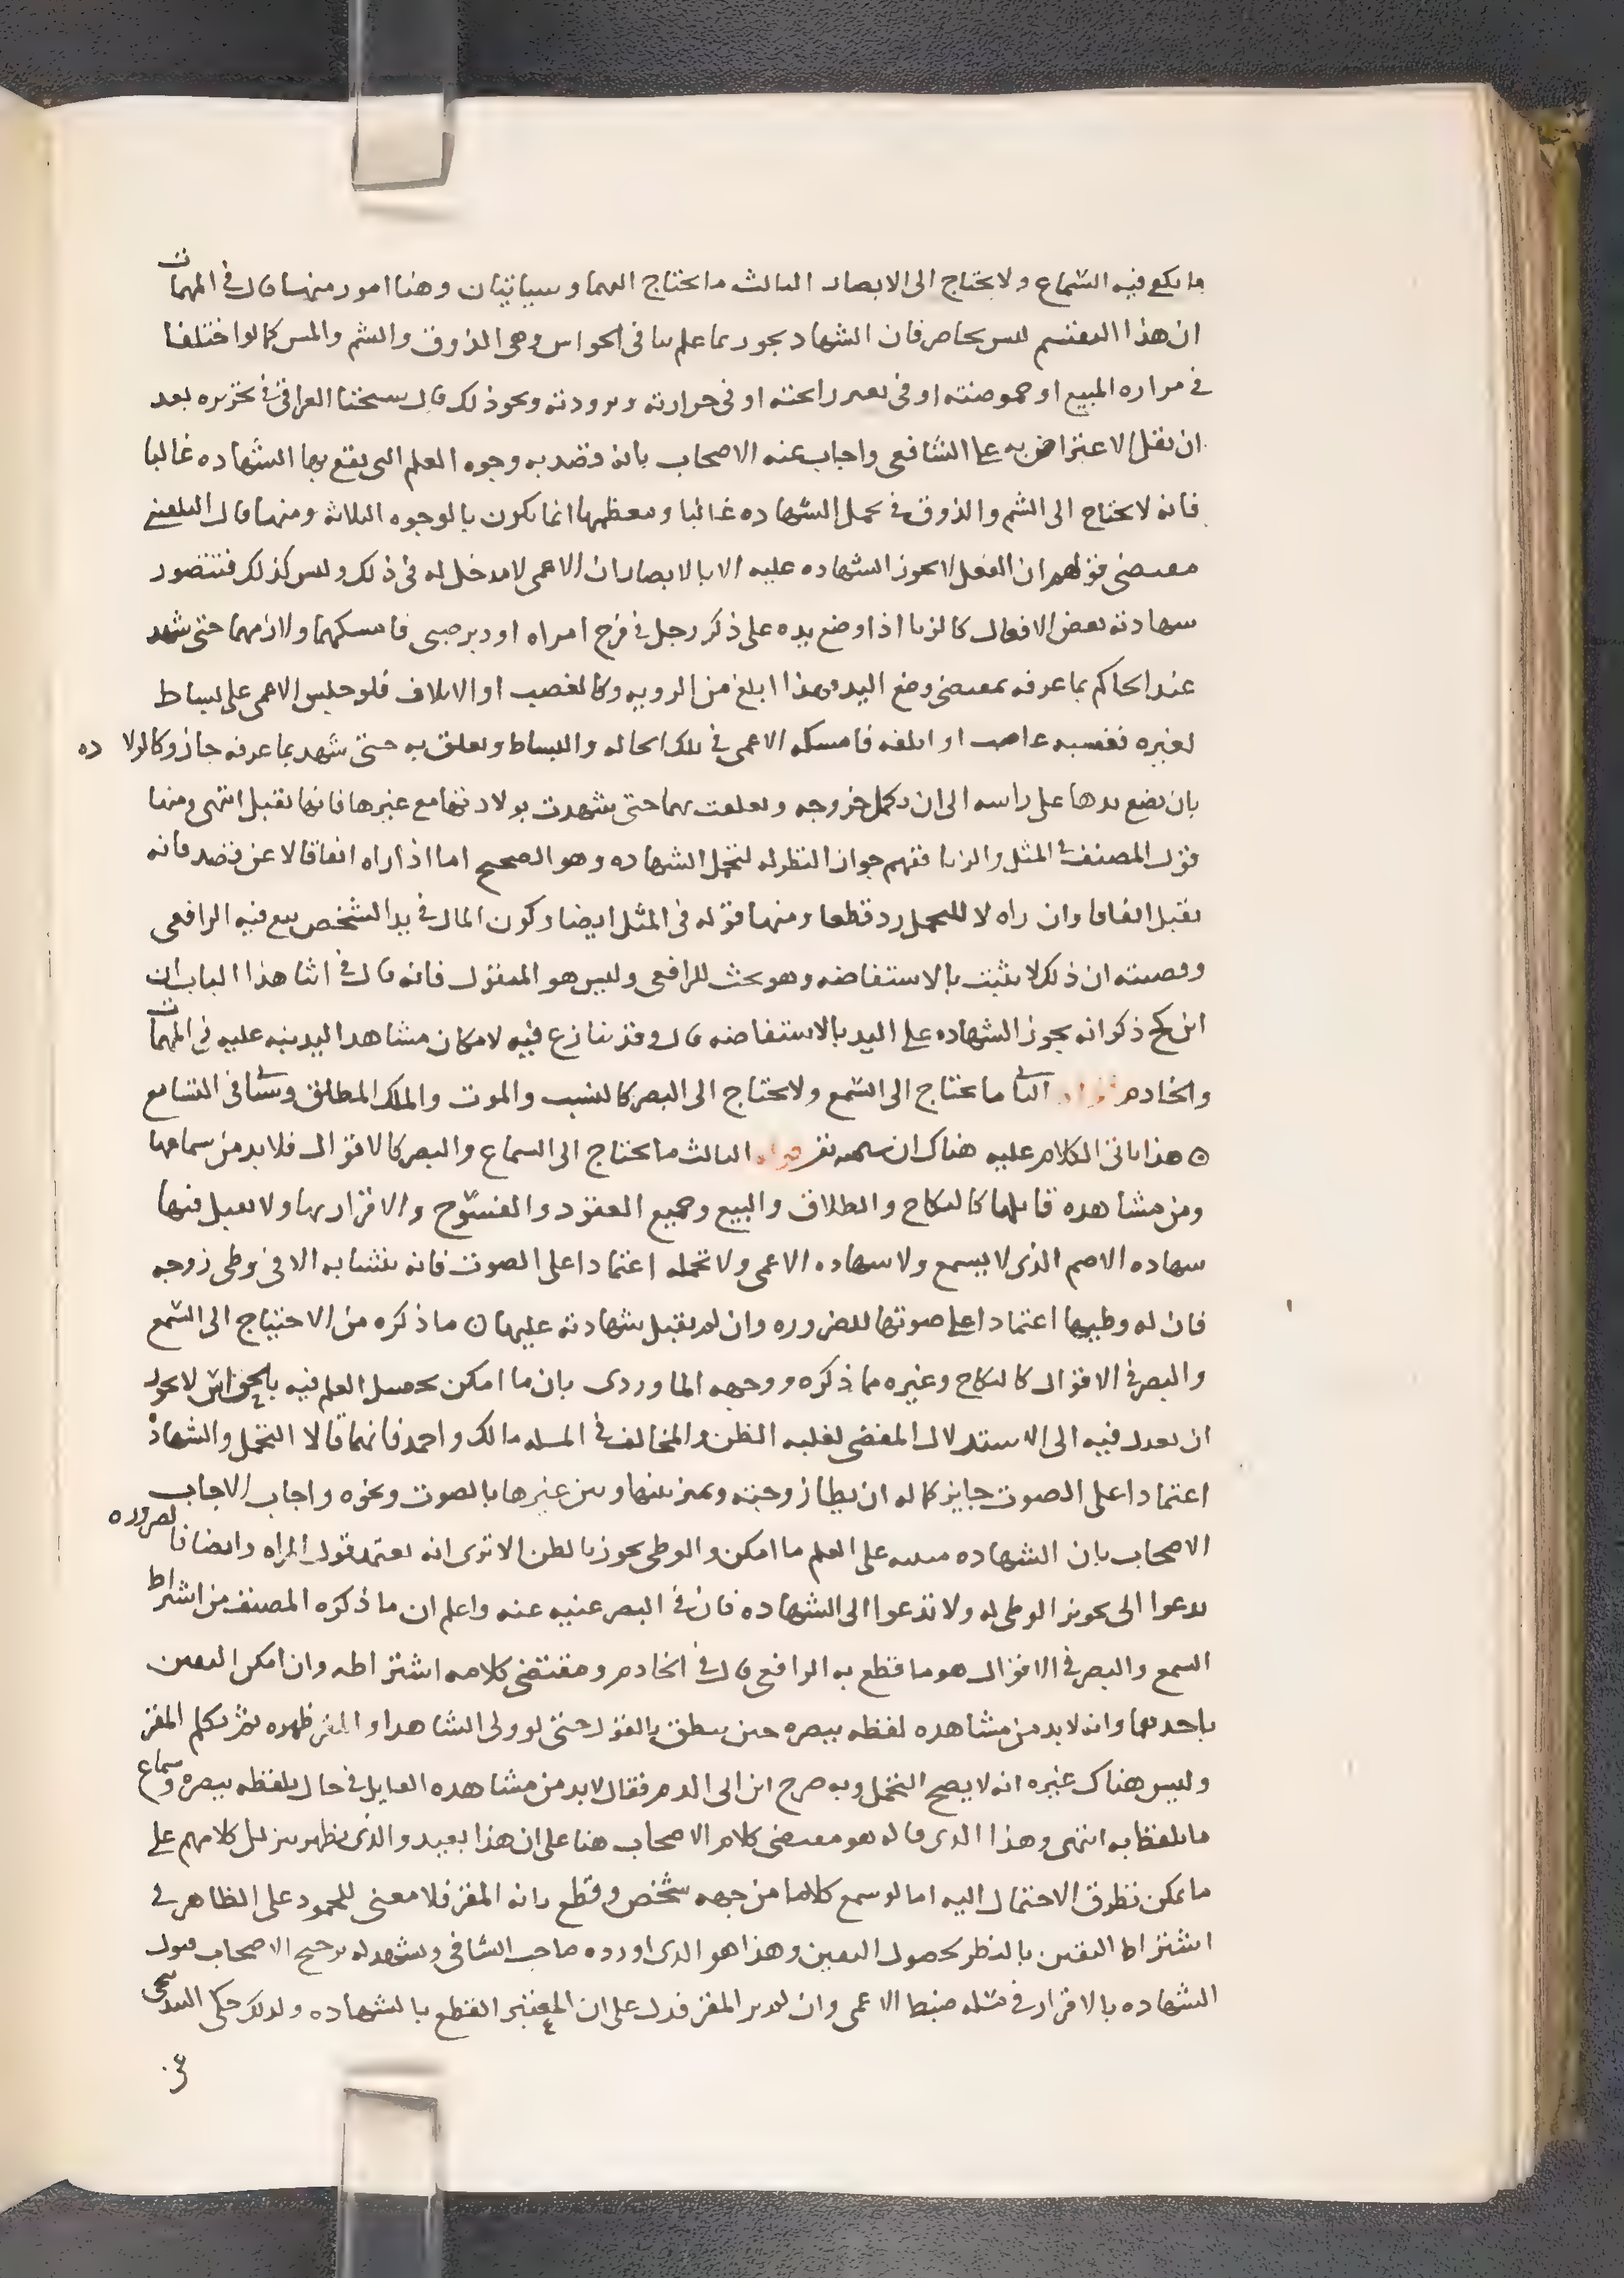 ما يكفي فيه السماع ولا يحتاج الى الابصار الثالث ما يحتاج اليهما وسياتيان وهنا امور منها قال في المهمات
ان هذا التقسيم ليس بحاصر فان الشهاد يجوز بما علم بباقي الحواس وهي الذوق والشم واللمس كما لو اختلفا
في مراره المبيع او حموضته او في تغير رائحته او في حرارته وبرودته ونحو ذلك قال شيخنا العراقي في تحريره بعد
ان نقل الاعتراض به على الشافعي واجاب عنه الاصحاب بانه قصد به وجوه العلم التي يقع بها الشهاده غالبا
فانه لا يحتاج الى الشم والذوق في تحمل الشهاده غالبا ومعظمها انما يكون بالوجوه الثلاثه ومنها قال البلقيني
مقتضى قولهم ان الفعل لا يجوز الشهاده عليه الا بالابصار ان الاعمى لا مدخل له في ذلك وليس كذلك فتتصور
شهادته بعض الافعال كالزنا اذا وضع يده على ذكر رجل في فرج امراه او دبر صبي فامسكهما ولازمهما حتى شهد
عند الحاكم بما عرفه بمقتضى وضع اليد وهذا ابلغ من الرويه وكالغصب او الاتلاف فلو جلس الاعمى على بساط
لغيره فغصبه غاصب او اتلفه فامسكه الاعمى في تلك الحاله والبساط وتعلق به حتى شهد بما عرفه جاز وكالولاده
بان تضع يدها على راسه الى ان تكمل خروجه وتعلقت بهما حتى شهدت بولادتها مع غيرها فانها تقبل انتهى ومنها
قول المصنف في المثل والزنا يفهم جواز النظر له لتحمل الشهاده وهو الصحيح اما اذا راه اتفاقا لا عن قصد فانه
يقبل اتفاقا وان راه لا للتحمل رد قطعا ومنها قوله في المثل ايضا وكون المال في يد الشخص تبع فيه الرافعي
وقضيته ان ذلك لا يثبت بالاستفاضه وهو بحث للرافعي وليس هو المنقول فانه قال في اثنا هذا الباب ان
ابن كج ذكر انه يجوز الشهاده على اليد بالاستفاضه قال وقد ينازع فيه لامكان مشاهد اليد نبه عليه في المهمات
والخادم الثاني ما يحتاج الى السمع ولا يحتاج الى البصر كالنسب والموت والملك المطلق وسياتي في التسامع
ه هذا ياتي الكلام عليه هناك ان الثالث ما يحتاج الى السماع والبصر كالاقوال فلا بد من سماعها
ومن مشاهده قايلها كالنكاح والطلاق والبيع وجميع العقود والفسوخ والاقرار بها ولا يقبل فيها
شهاده الاصم الذي لا يسمع ولا شهاده الاعمى ولا تحمله اعتمادا على الصوت فانه يتشابه الا في وطي زوجه
فان له وطيها اعتمادا على صوتها للضروره وان لم يقبل شهادته عليها ه ما ذكره من الاحتياج الى السمع
والبصر في الاقوال كالنكاح وغيره مما ذكره ووجهه الماوردي بان ما امكن تحصيل العلم فيه بالحواس لا يجوز
ان يعدل فيه الى الاستدلال المفضي لغلبه الظن والمخالف في المسله مالك واحمد فانهما قالا التحمل والشهاد
اعتمادا على الصوت جايز كما له ان يطا زوجته ويميز بينها وبين غيرها بالصوت ونحوه واجاب الاجاب
الاصحاب بان الشهاده مبنيه على العلم ما امكن والوطي يجوز بالظن الا ترى انه يعتمد قول المراه وايضا فالضروره
تدعوا الى تجويز الوطي له ولا تدعوا الى الشهاده فان في البصر غنيه عنه واعلم ان ما ذكره المصنف من اشراط
السمع والبصر في الاقوال هو ما قطع به الرافعي قال في الخادم ومقتضى كلامه اشتراطه وان امكن اليقين
باحدهما وانه لا بد من مشاهده لفظه ببصره حين ينطق بالقول حتى لو ولى الشاهد او المقر ظهره ثم تكلم المقر
وليس هناك غيره انه لا يصح التحمل وبه صرح ابن ابي الدم فقال لا بد من مشاهده القايل في حال تلفظه ببصره وسماع
ما تلفظا به انتهى وهذا الذي قاله هو مقتضى كلام الاصحاب هنا على ان هذا بعيد والذي يظهر تنزيل كلامهم على
ما يمكن تطرق الاحتمال اليه اما لو سمع كلاما من جهه شخص وقطع بانه المقر فلا معنى للجمود على الظاهر في
اشتراط اليقين بالنظر لحصول اليقين وهذا هو الذي اورده صاحب الشافي ويشهد له ترجيح الاصحاب قبول
الشهاده بالاقرار في مسله ضبط الاعمى وان لم ير المقر فدل على ان المعتبر القطع بالشهاده ولذلك حكى